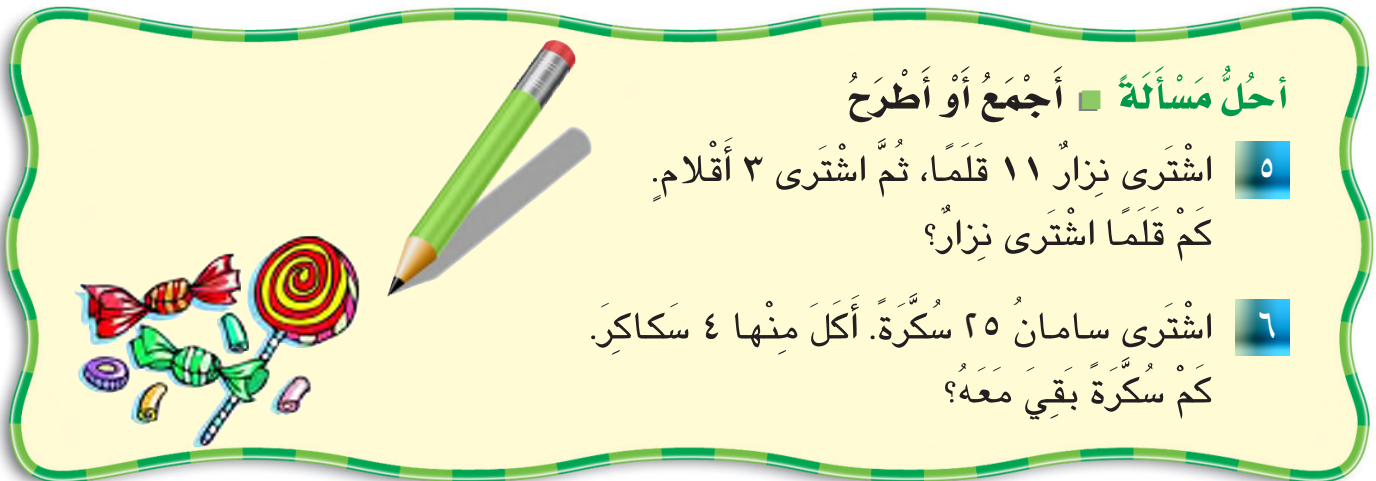 أحُلُّ مَسْأَلَةً ■ أَجْمَعُ أَوْ أَطْرَحُ
٥ اشْتَرى نِزارٌ ١١ قَلَمًا، ثُمَّ اشْتَرى ٣ أَقْلامٍ.
كَمْ قَلَمًا اشْتَرى نِزارٌ؟
٦ اشْتَرى سامانُ ٢٥ سُكَّرَةً. أَكَلَ مِنْها ٤ سَكاكِرَ.
كَمْ سُكَّرَةً بَقِيَ مَعَهُ؟